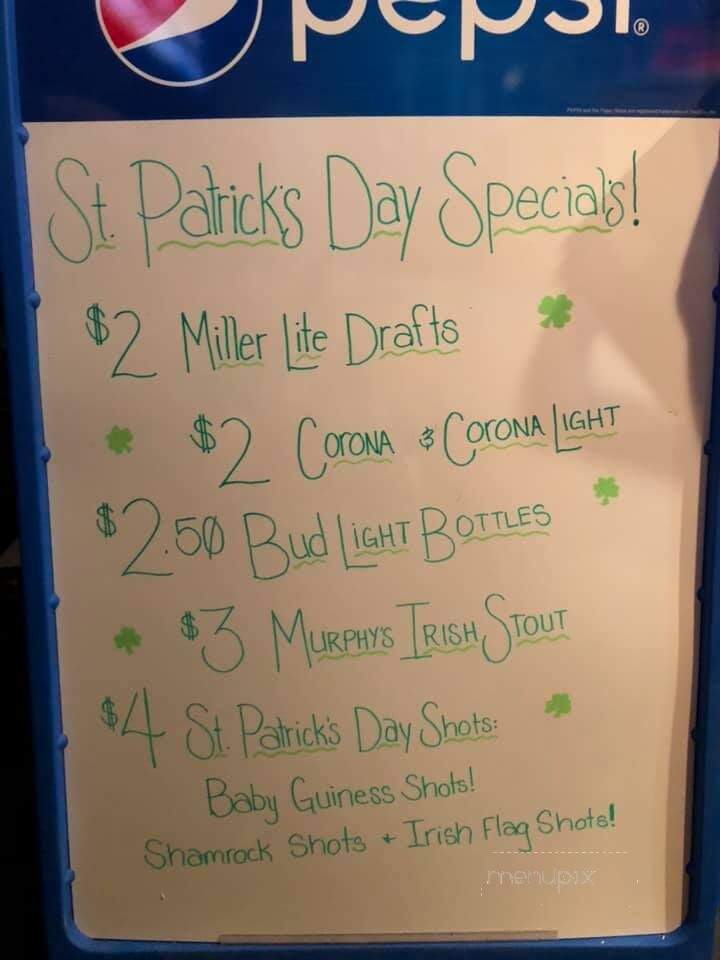 pepsi®
St. Patrick's Day Specials!
$2 Miller Lite Drafts
$2 CORONA & CORONA LIGHT
$2.50 Bud LIGHT BOTTLES
$3 MURPHY'S IRISH STOUT
$4 St. Patrick's Day Shots:
Baby Guiness Shots!
Shamrock Shots + Irish Flag Shots!
menupix